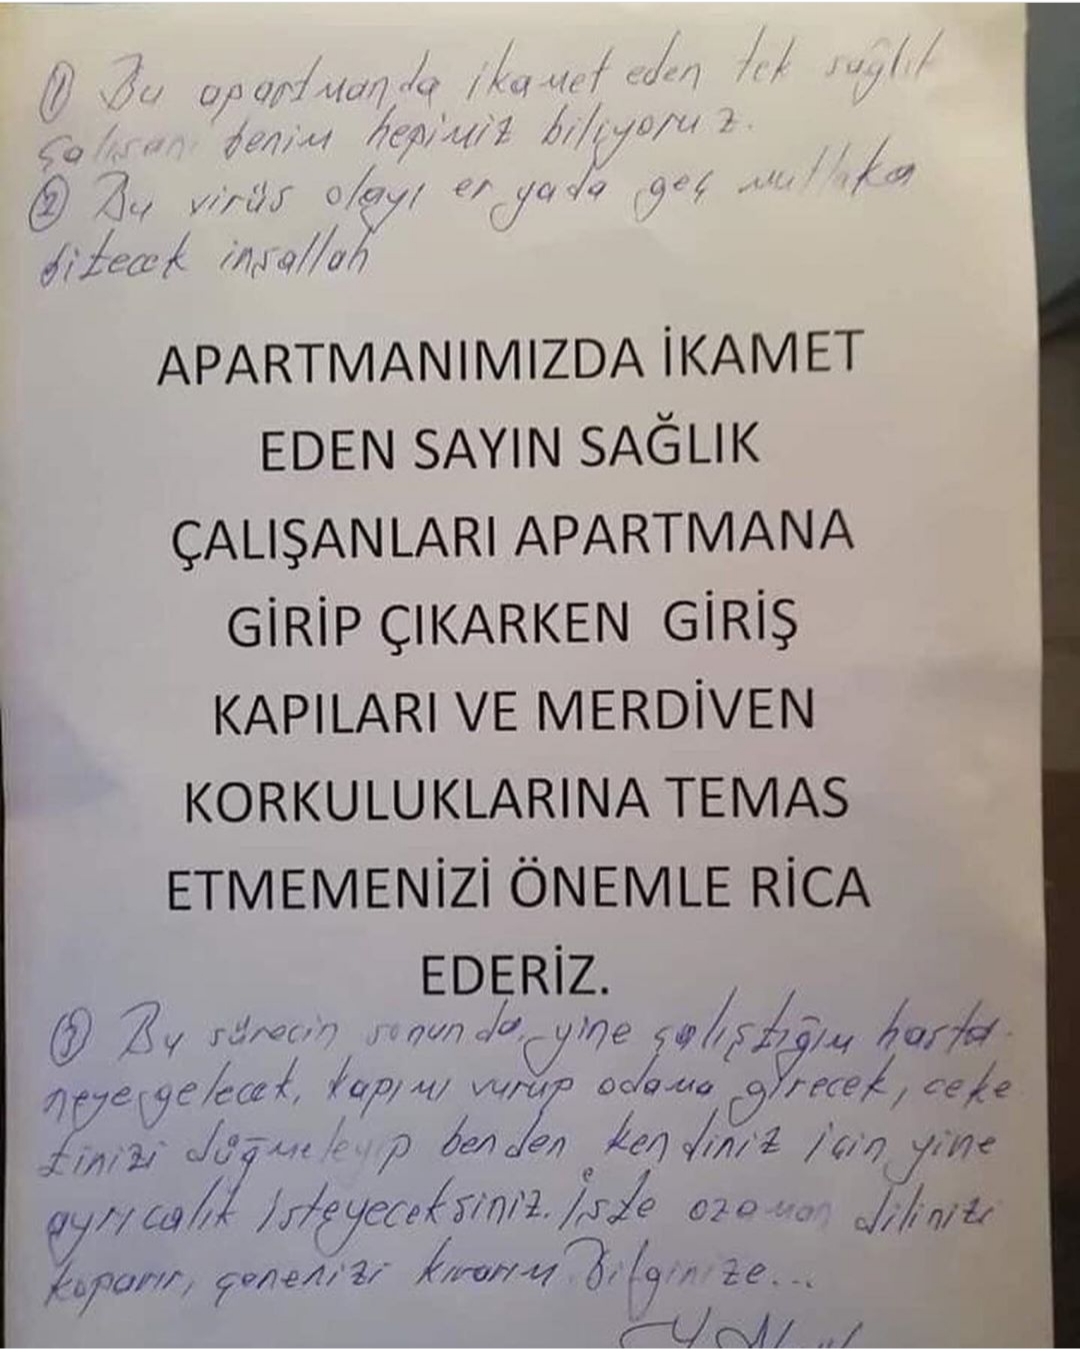 ① Bu apartmanda ikamet eden tek sağlık
çalışanı benim hepimiz biliyoruz.
② Bu virüs olayı er yada geç mutlaka
bitecek inşallah
APARTMANIMIZDA İKAMET
EDEN SAYIN SAĞLIK
ÇALIŞANLARI APARTMANA
GİRİP ÇIKARKEN GİRİŞ
KAPILARI VE MERDİVEN
KORKULUKLARINA TEMAS
ETMEMENİZİ ÖNEMLE RİCA
EDERİZ.
③ Bu sürecin sonunda, yine çalıştığım hasta-
neye gelecek, kapımı vurup odama girecek, ceke
tinizi düğmeleyip benden kendiniz için yine
ayrıcalık isteyeceksiniz. İşte ozaman dilinizi
koparır, çenenizi kırarım Bilginize...